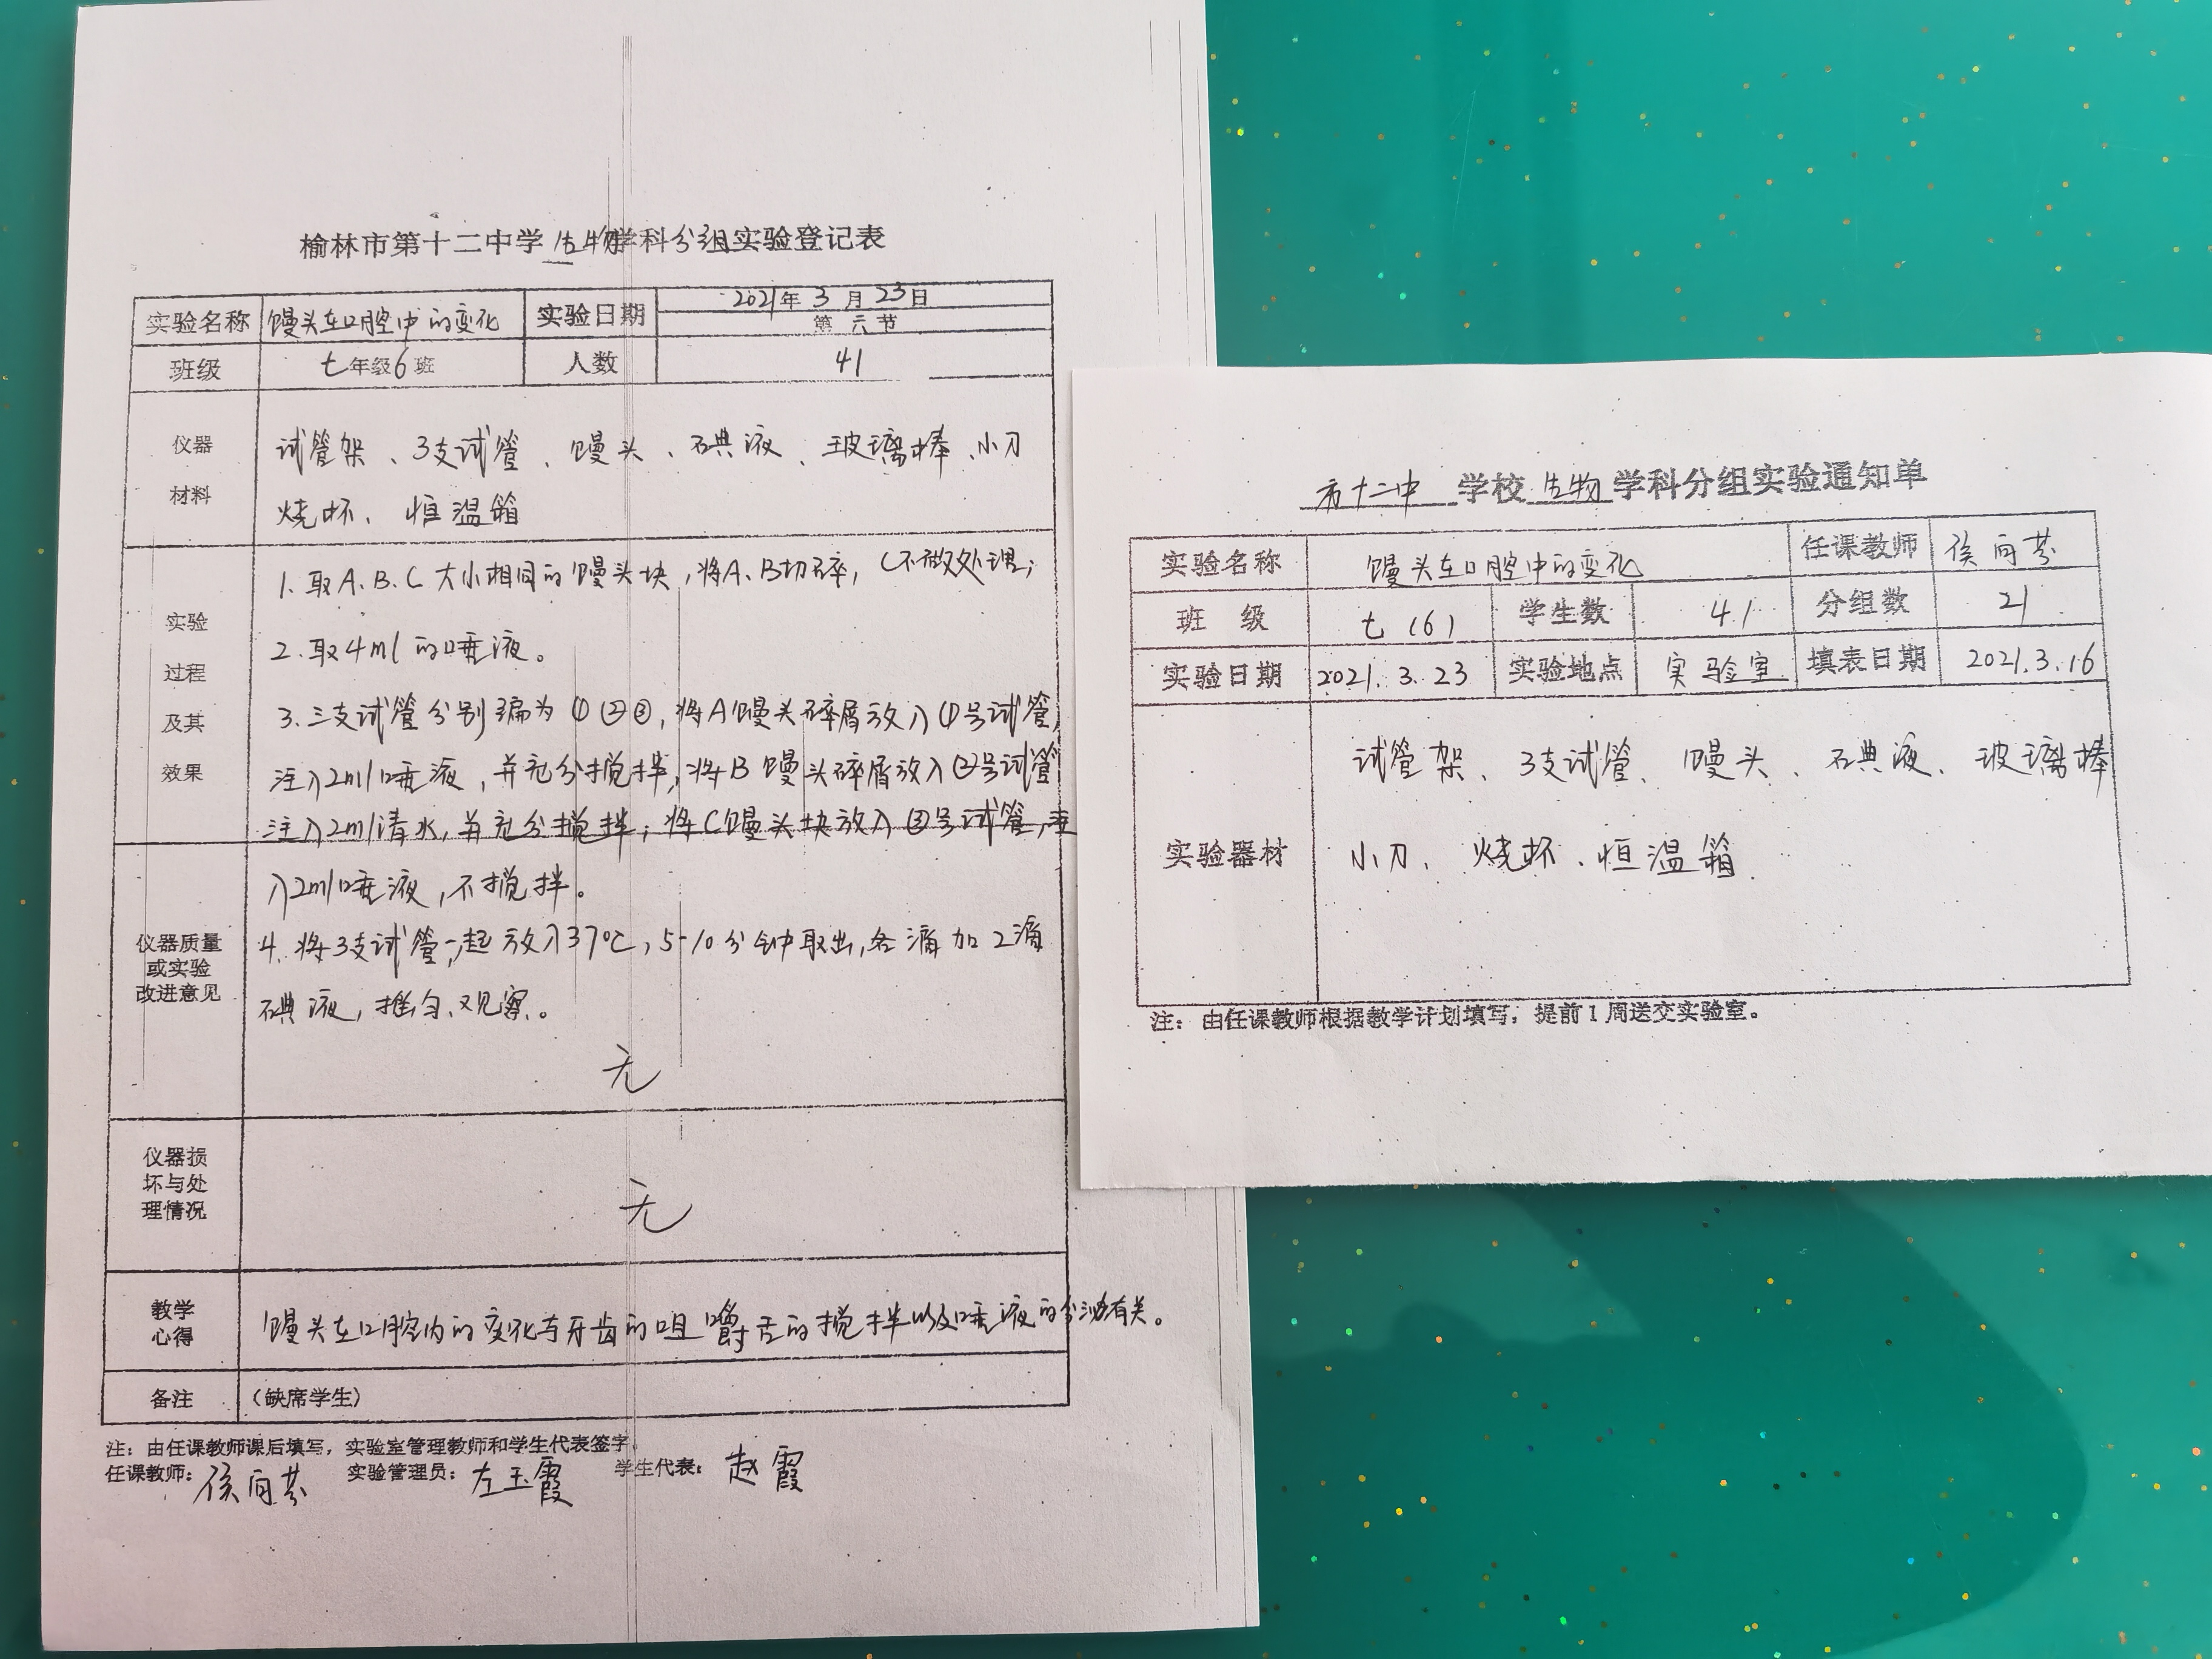 榆林市第十二中学生物学科分组实验登记表
实验名称 馒头在口腔中的变化 实验日期 2021年3月23日
第六节
班级 七年级6班 人数 41
仪器
材料
试管架、3支试管、馒头、碘液、玻璃棒、小刀
烧杯、恒温箱
实验
过程
及其
效果
1.取A.B.C大小相同的馒头块,将A、B切碎,C不做处理;
2.取4ml的唾液。
3.三支试管分别编为①②③,将A馒头碎屑放入①号试管,
注入2ml唾液,并充分搅拌;将B馒头碎屑放入②号试管
注入2ml清水,并充分搅拌;将C馒头块放入③号试管,注
入2ml唾液,不搅拌。
4.将3支试管一起放入37℃,5-10分钟取出,各滴加2滴
碘液,摇匀、观察。
仪器质量
或实验
改进意见
无
仪器损
坏与处
理情况
无
教学
心得
馒头在口腔内的变化与牙齿的咀嚼舌的搅拌以及唾液的分泌有关。
备注 (缺席学生)
注:由任课教师课后填写,实验室管理教师和学生代表签字
任课教师:侯向芬 实验管理员:左玉霞 学生代表:赵霞
市十二中 学校 生物 学科分组实验通知单
实验名称 馒头在口腔中的变化 任课教师 侯向芬
班 级 七(6) 学生数 41 分组数 21
实验日期 2021.3.23 实验地点 实验室 填表日期 2021.3.16
实验器材
试管架、3支试管、馒头、碘液、玻璃棒
小刀、烧杯、恒温箱
注:由任课教师根据教学计划填写,提前1周送交实验室。